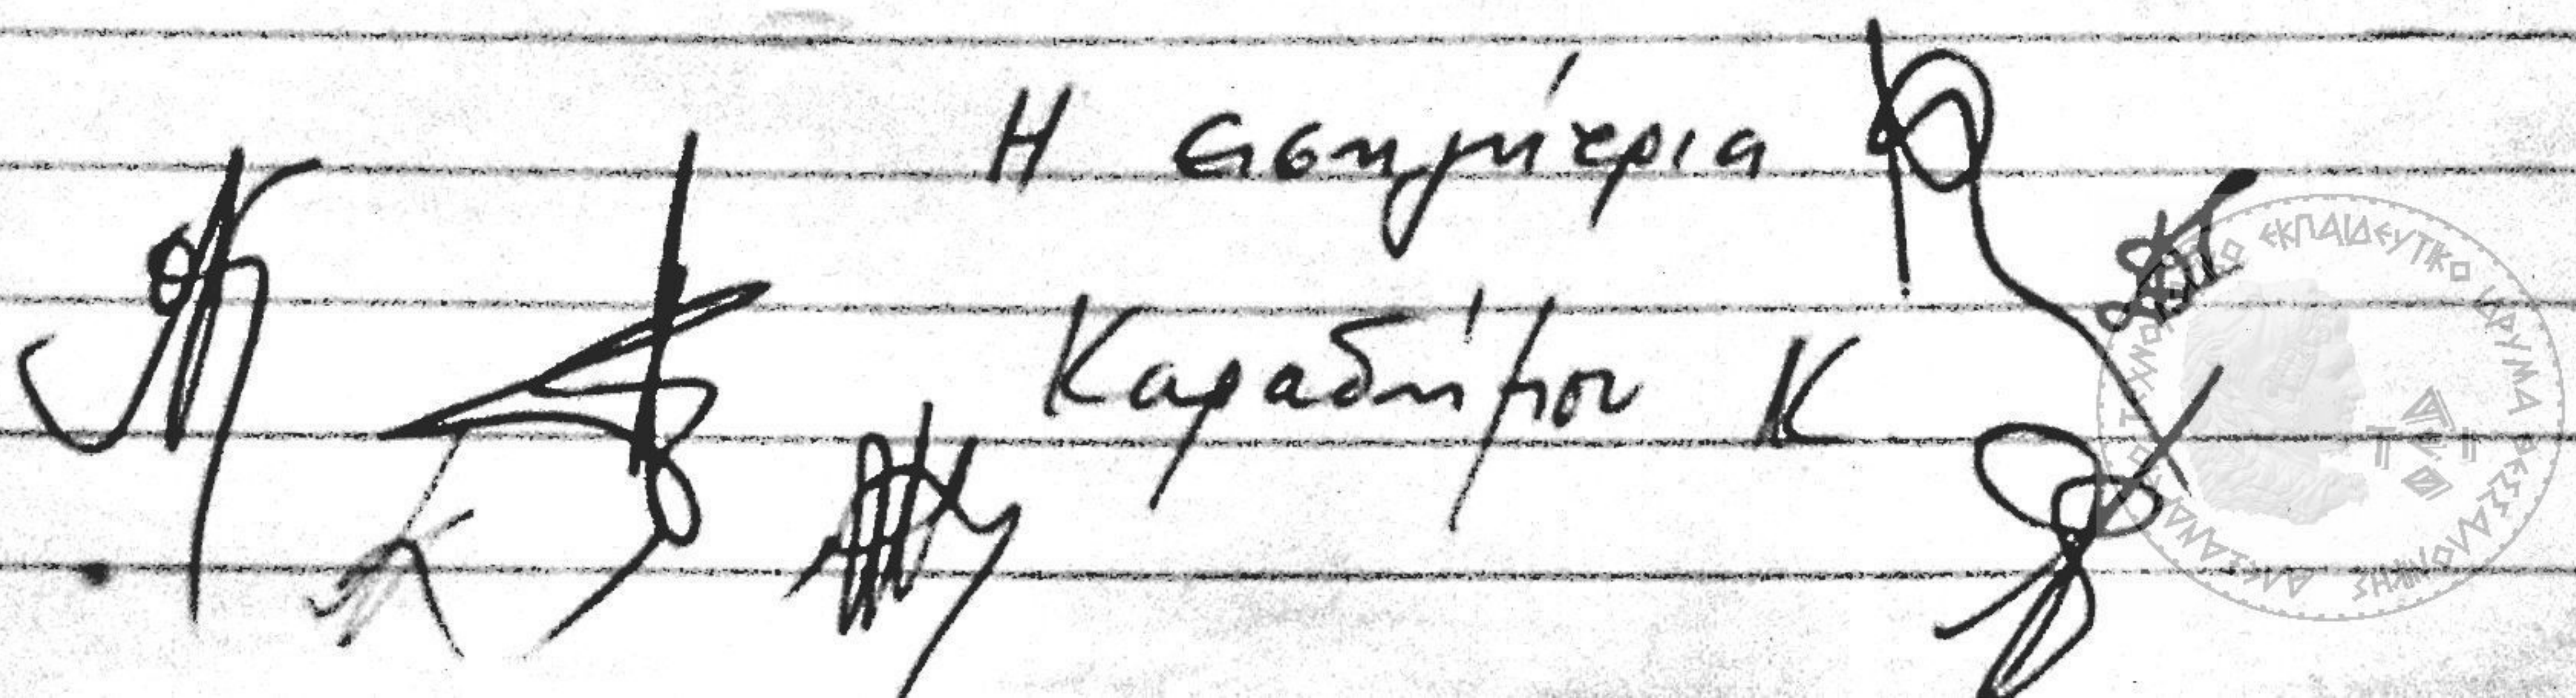 Η εισηγήτρια
Καραδήμου Κ
ΑΛΕΞΑΝΔΡΕΙΟ ΤΕΧΝΟΛΟΓΙΚΟ ΕΚΠΑΙΔΕΥΤΙΚΟ ΙΔΡΥΜΑ ΘΕΣΣΑΛΟΝΙΚΗΣ